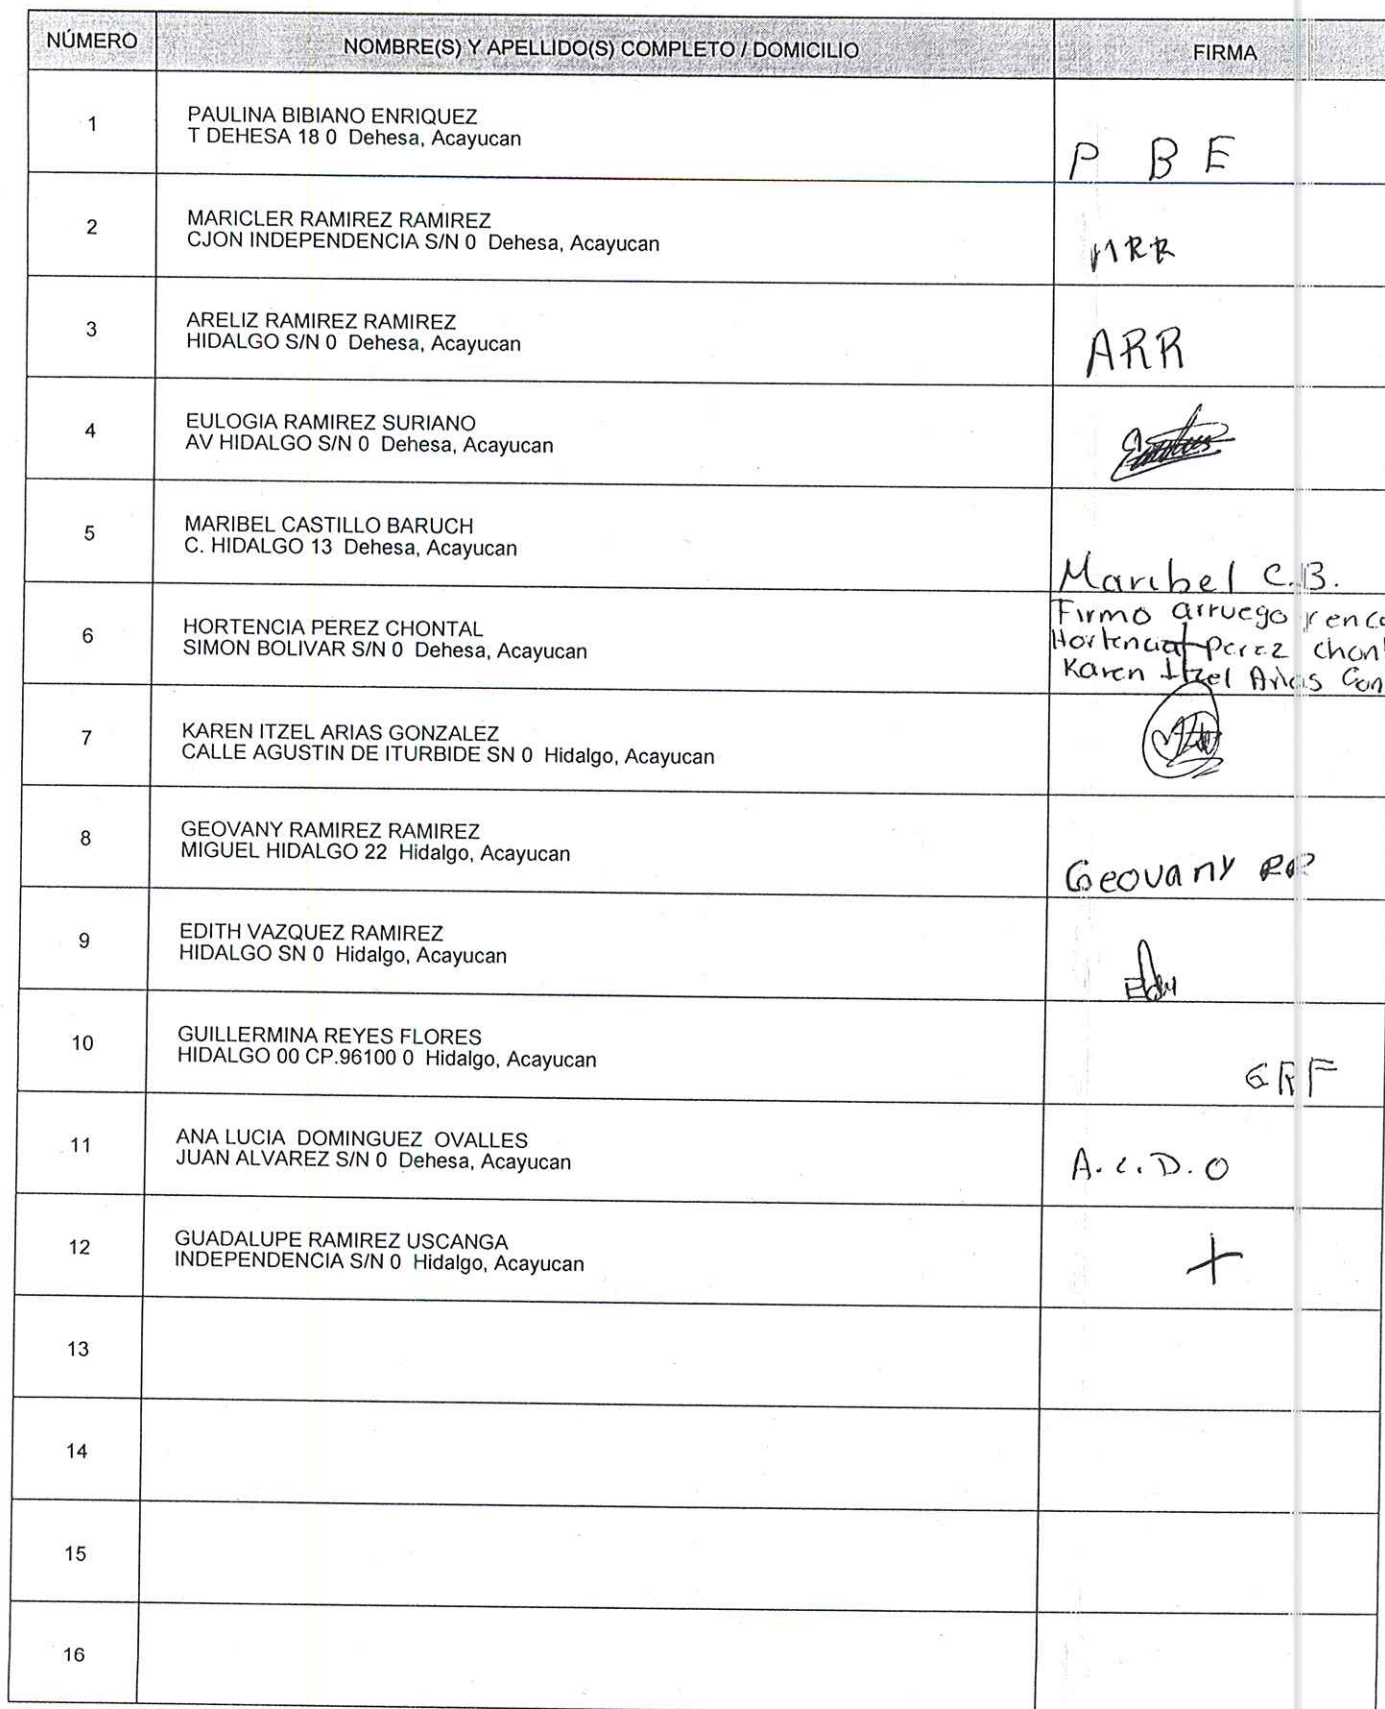 NÚMERO NOMBRE(S) Y APELLIDO(S) COMPLETO / DOMICILIO FIRMA
1 PAULINA BIBIANO ENRIQUEZ
T DEHESA 18 0 Dehesa, Acayucan
P B E
2 MARICLER RAMIREZ RAMIREZ
CJON INDEPENDENCIA S/N 0 Dehesa, Acayucan
MRR
3 ARELIZ RAMIREZ RAMIREZ
HIDALGO S/N 0 Dehesa, Acayucan
ARR
4 EULOGIA RAMIREZ SURIANO
AV HIDALGO S/N 0 Dehesa, Acayucan
5 MARIBEL CASTILLO BARUCH
C. HIDALGO 13 Dehesa, Acayucan
Maribel C.B.
6 HORTENCIA PEREZ CHONTAL
SIMON BOLIVAR S/N 0 Dehesa, Acayucan
Firmo arruego y enca
Hortencia perez chont
Karen Itzel Arias Gon
7 KAREN ITZEL ARIAS GONZALEZ
CALLE AGUSTIN DE ITURBIDE SN 0 Hidalgo, Acayucan
8 GEOVANY RAMIREZ RAMIREZ
MIGUEL HIDALGO 22 Hidalgo, Acayucan
Geovany RR
9 EDITH VAZQUEZ RAMIREZ
HIDALGO SN 0 Hidalgo, Acayucan
10 GUILLERMINA REYES FLORES
HIDALGO 00 CP.96100 0 Hidalgo, Acayucan
GRF
11 ANA LUCIA DOMINGUEZ OVALLES
JUAN ALVAREZ S/N 0 Dehesa, Acayucan
A.L.D.O
12 GUADALUPE RAMIREZ USCANGA
INDEPENDENCIA S/N 0 Hidalgo, Acayucan
+
13
14
15
16